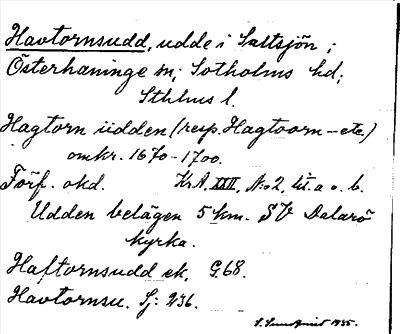 Havtornsudd, udde i Saltsjön;
Österhaninge sn; Sotholms hd;
Sthlms l.
Hagtorn üdden (resp. Hagtoorn – etc)
omkr. 1670–1700.
Förf. okd. KrA. XXII, No 2, lit. a o. b.
Udden belägen 5 km. SV Dalarö
kyrka.
Haftornsudd ek. G.68.
Havtornsu. Sj: 236.
S. Sundqvist 1935.